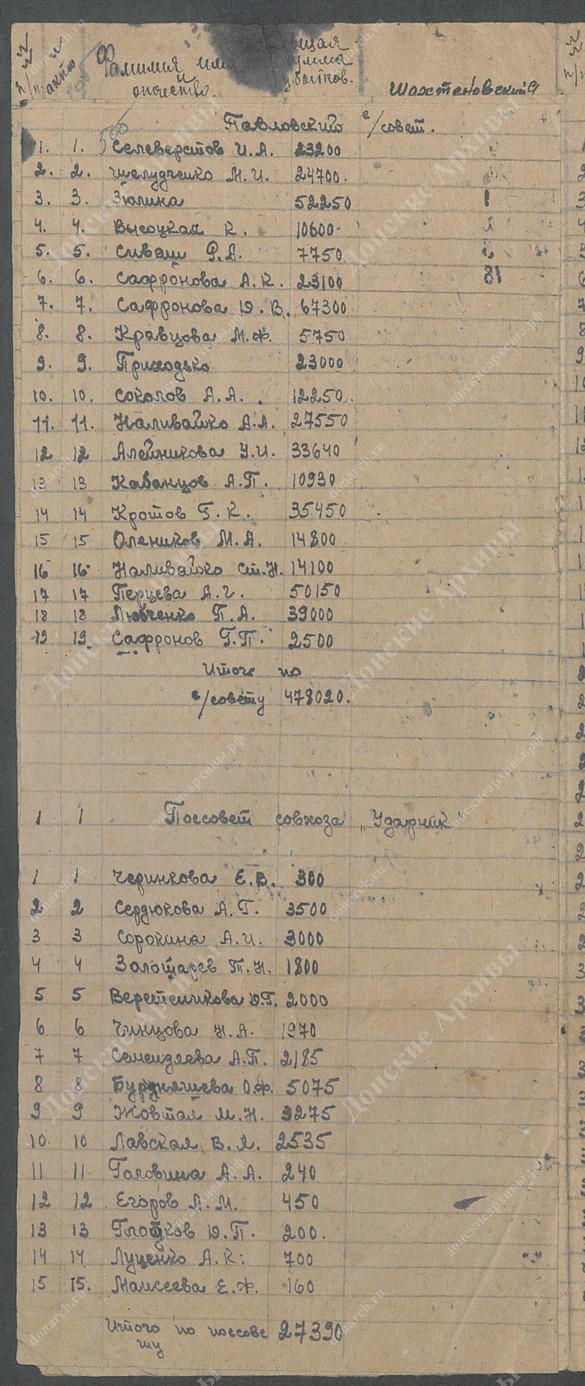 №№ п/п
№ акта
Фамилия имя и отчество.
Общая сумма убытков.
Шахтеновский
Павловский с/совет.
1. 1. Селеверстов И.А. 23200
2. 2. Шелудченко М.И. 24700.
3. 3. Зюлина 52250
4. 4. Высоцкая К. 10600-
5. 5. Сиваш Р.А. 7750
6. 6. Сафронова А.К. 23100
7. 7. Сафронова Д.В. 67300
8. 8. Кравцова М.Ф. 5750
9. 9. Приходько 23000
10. 10. Соколов А.А. 12250.
11. 11. Наливайко А.А. 27550
12 12 Алейникова У.И. 33640
13 13 Кабанцов А.П. 10930
14 14 Кротов Г.К. 35450
15 15 Олеников М.А. 14800
16 16 Наливайко Ст.Н. 14100
17 17 Перцева А.Г. 50150
18 18 Любченко П.А. 39000
19 19 Сафронов Г.П. 2500
Итого по
с/совету 478020.
1 1 Поссовет совхоза „Ударник"
1 1 Черинкова Е.В. 300
2 2 Сердюкова А.Г. 3500
3 3 Сорокина А.И. 3000
4 4 Золотарев Т.Н. 1800
5 5 Веретенникова Д.Г. 2000
6 6 Чинцова Н.А. 1970
7 7 Семендяева А.П. 2185
8 8 Бурдняшева О.Ф. 5075
9 9 Жовтая М.Н. 3275
10. 10 Лавская В.Я. 2535
11 11 Головина А.А. 240
12 12. Егоров А.М. 450
13 13 Глотков Д.П. 200.
14 14 Луценко А.К. 700
15 15. Маисеева Е.Ф. 160
Итого по поссове 27390
ту